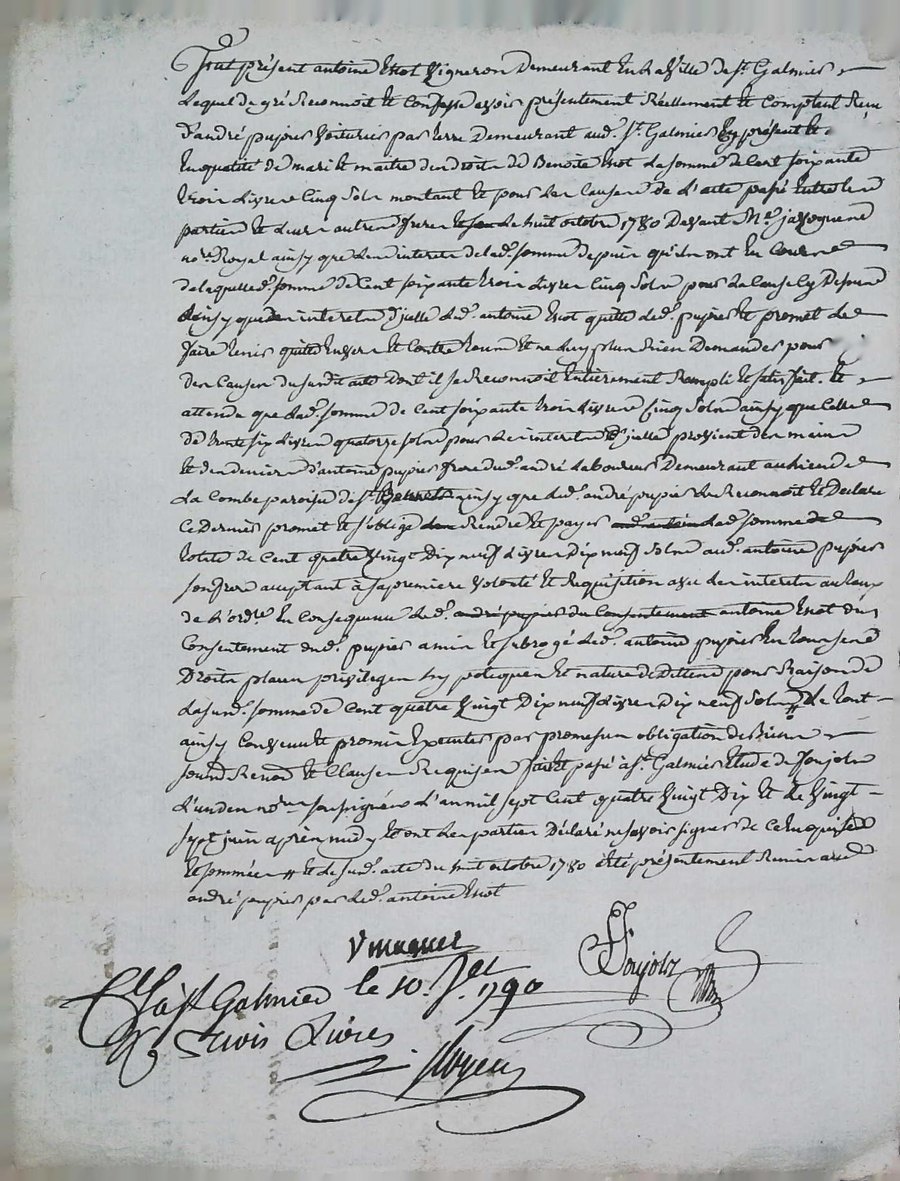 fut présent antoine Viot Vigneron Demeurant En la Ville de St. Galmier
Lequel de gré Reconnoit Et Confesse avoir présentement Réellement Et Comptent Reçu
D'andré pupier Voiturier par terre Demeurant aud. St. Galmier Cy présent Et
En qualité de mari Et maitre des droits de Benoite Viot La somme de Cent soixante
trois Livres Cinq Sols montant Et pour Les Causes de L'acte passé Entre Les
parties Et Leurs autres freres Le huit octobre 1780 Devant Me.
nore. Royal ainsy que des interets de lad. somme depuis qu'ils ont En Cours
de laquelle d. somme de Cent soixante trois Livres Cinq Sols pour La Cause Cy Dessus
ainsy que des interets d'jcelle led. antoine Viot quitte led. pupier Et promet Le
faire tenir quitte Envers Et Contre tous Et ne Luy plus Rien Demander pour
Les Causes du susdit acte Dont il se Reconnoit Entièrement Rempli Et satisfait. Et
attendu que lad. somme de Cent soixante trois Livres Cinq Sols ainsy que Celle
de trente six Livres quatorze sols pour Les interets d'jcelle provient des mains
Et des deniers d'antoine pupier frere dud. andré Laboureur Demeurant au Lieu de
La Combe paroisse de St. ainsy que led. andré pupier Le Reconnoit Et Declare
Ce Dernier promet Et s'oblige Rendre Et payer lad. somme
totale de Cent quatre Vingt Dix neuf Livres Dix neuf Sols aud. antoine pupier
son frere acceptant à sa premiere Volonté Et Requisition avec Les interets au taux
de L'ordce. En Consequence led. andré pupier du Consentement antoine Viot du
Consentement dud. pupier a mis Et subrogé led. antoine pupier En tous ses
Droits places privileges hypoteques Et nature de Dettes pour Raison de
La susd. somme de Cent quatre Vingt Dix neuf Livres Dix neuf Sols Le tout
ainsy Convenu Et promis Executer par promesses obligation de Biens
soumis Renon Et Clauses Requises fait Et passé à St. Galmier Etude de Joujoly
L'un des nores. soussignés L'an mil sept Cent quatre Vingt Dix Et Le Vingt
sept juin après midy Et ont Les parties Déclaré ne savoir signer de Ce Enquises
Et sommées # Et Le susd. acte du huit octobre 1780 Eté présentement Remis aud.
andré pupier par led. antoine Viot
Joujoly
à St Galmier le 10. Jet 1790
trois Livres